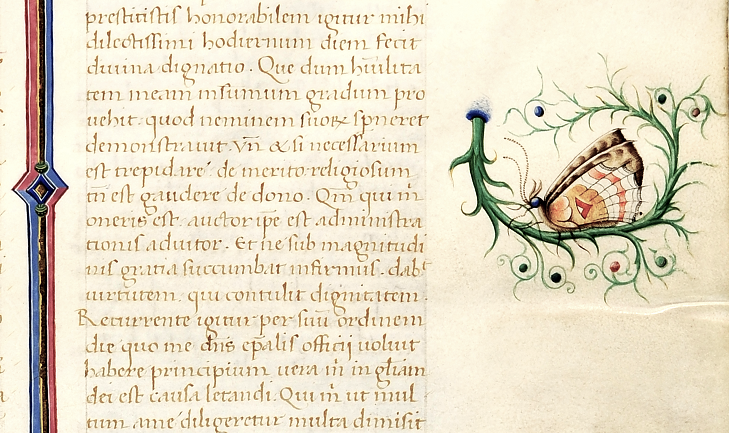 prestitistis honorabilem igitur mihi
dilectissimi hodiernum diem fecit
diuina dignatio. Que dum hūilita
tem meam in sumum gradum pro
uehit. quod neminem suoꝝ sṕneret
demonstrauit. Vn̄ & si necessarium
est trepidare de merito. religiosum
tn̄ est gaudere de dono. Qm̄ qui m̄
oneris est auctor ip̄e est administra
tionis adiutor. Et ne sub magnitudi
nis gratia succumbat infirmus. dabͭ
uirtutem. qui contulit dignitatem.
Recurrente igitur per suū ordinem
die quo me dn̄s ep̄alis officij uoluit
habere principium uera m̄ in gl̄iam
dei est causa letandi. Qui m̄ ut mul
tum a me diligeretur multa dimisit